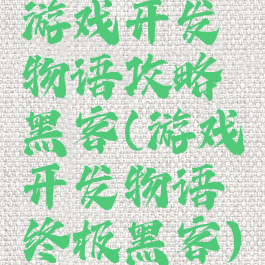 游戏开发
物语攻略
黑客(游戏
开发物语
终极黑客)